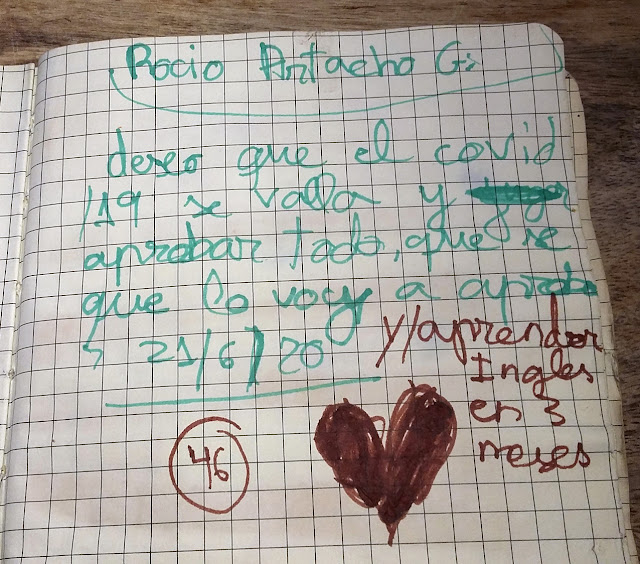 Rocio Artacho G.
deseo que el covid
/19 se valla y
aprobar todo, que se
que lo voy a aproba
r 21/6/20
y/aprender
Ingles
en 3
meses
46